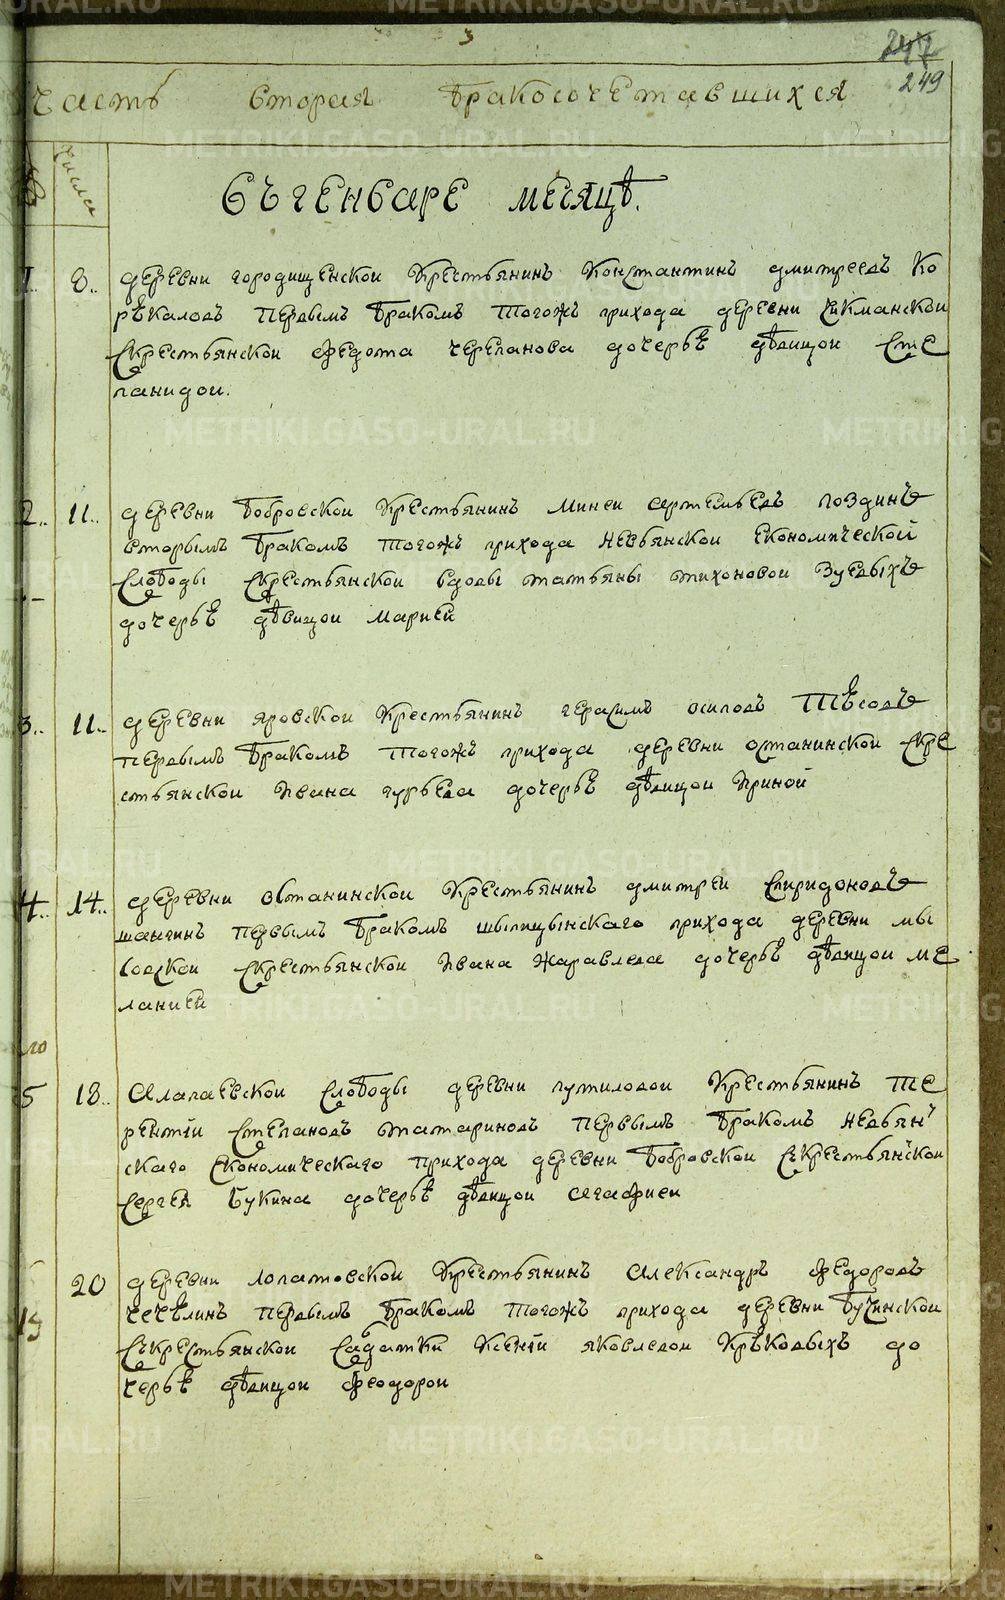 247
249
часть вторая бракосочетавшихся
числа
въ генваре месяцѣ.
1.. 8.. деревни городищенской крестьянинъ константинъ дмитреевъ ко
рѣкаловъ первымъ бракомъ тогожъ прихода деревни кикманской
скрестьянской федота черепанова дочерьѣ дѣвицои сте
панидои.
2.. 11.. деревни бобровской крестьянинъ миней
вторымъ бракомъ тогожъ прихода невьянской економической
слободы скрестьянской вдовы татьяны тихоновой зуевыхъ
дочерьѣ дѣвицои марией
3.. 11.. деревни яровской крестьянинъ герасимъ осиповъ
первымъ бракомъ тогожъ прихода деревни останинской скре
стьянской ивана гурьева дочерьѣ дѣвицои ириной
4.. 14.. деревни останинской крестьянинъ дмитрей спиридоновъ
шангинъ первымъ бракомъ шыпицынскаго прихода деревни мы
совской скрестьянской ивана жаравлева дочерьѣ дѣвицои ме
ланией
5 18.. алапаевской слободы деревни путиловой крестьянинъ те
рентіи степановъ татариновъ первымъ бракомъ невьян
скаго економическаго прихода деревни бобровской съкрестьянской
сергея букина дочерьѣ дѣвицои агафиеи
20 деревни лопатовской крестьянинъ александръ федоровъ
чечѣлинъ первымъ бракомъ тогожъ прихода деревни бучинской
съкрестьянской садатки ксенїи яковлевой крѣковыхъ до
черьѣ дѣвицои феодорои